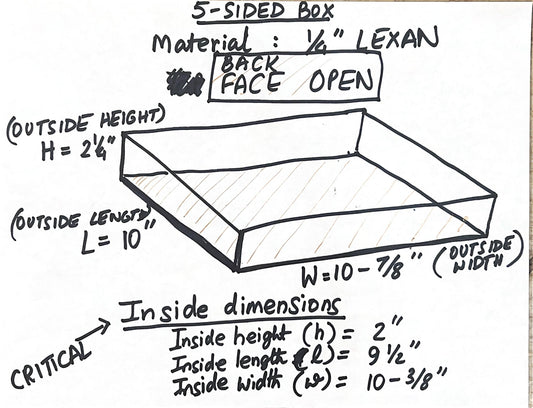 5-SIDED BOX
Material : 1/4" LEXAN
BACK
FACE OPEN
(OUTSIDE HEIGHT)
H = 2 1/4"
(OUTSIDE LENGTH)
L = 10"
W = 10 - 7/8" (OUTSIDE WIDTH)
Inside dimensions
CRITICAL
Inside height (h) = 2"
Inside length (l) = 9 1/2"
Inside width (w) = 10 - 3/8"